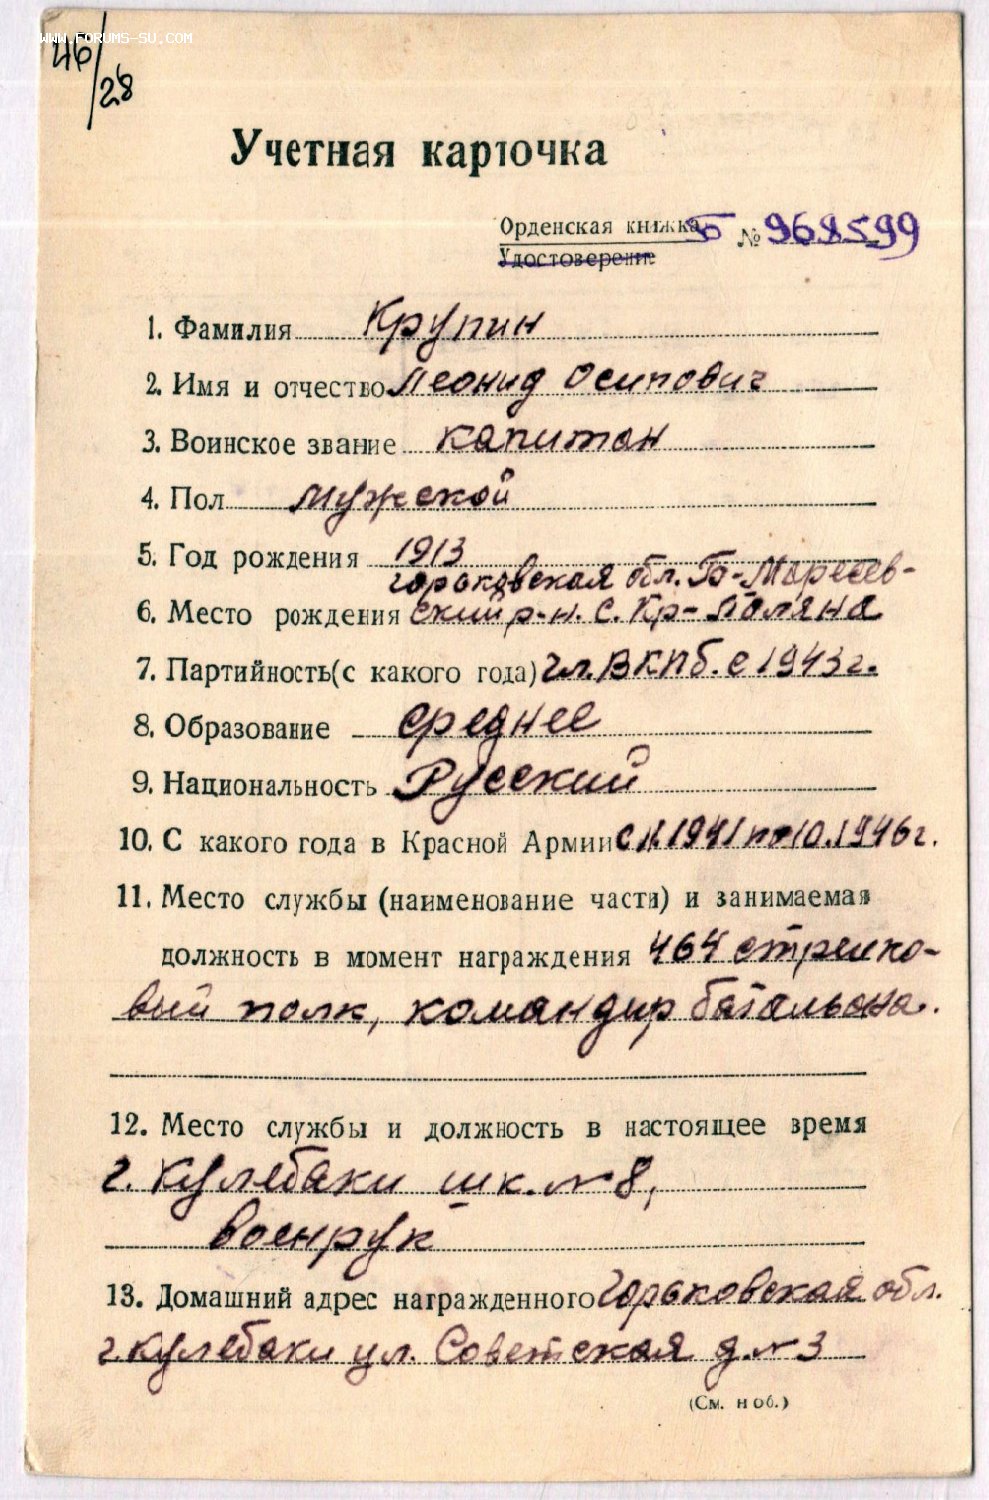 WWW.FORUMS-SU.COM
46/28
Учетная карточка
Орденская книжка Б № 968599
Удостоверение
1. Фамилия Крупин
2. Имя и отчество Леонид Осипович
3. Воинское звание капитан
4. Пол мужской
5. Год рождения 1913
горьковская обл. Б-Маресев-
6. Место рождения ский р-н. с. Кр-Поляна
7. Партийность (с какого года) чл. ВКПб. с 1943 г.
8. Образование среднее
9. Национальность Русский
10. С какого года в Красной Армии с 1941 по 10.1946 г.
11. Место службы (наименование части) и занимаемая
должность в момент награждения 464 стрелко-
вый полк, командир батальона.
12. Место службы и должность в настоящее время
г. Кулебаки шк. №8,
военрук
13. Домашний адрес награжденного Горьковская обл.
г. Кулебаки ул. Советская д. №3
(См. н об.)